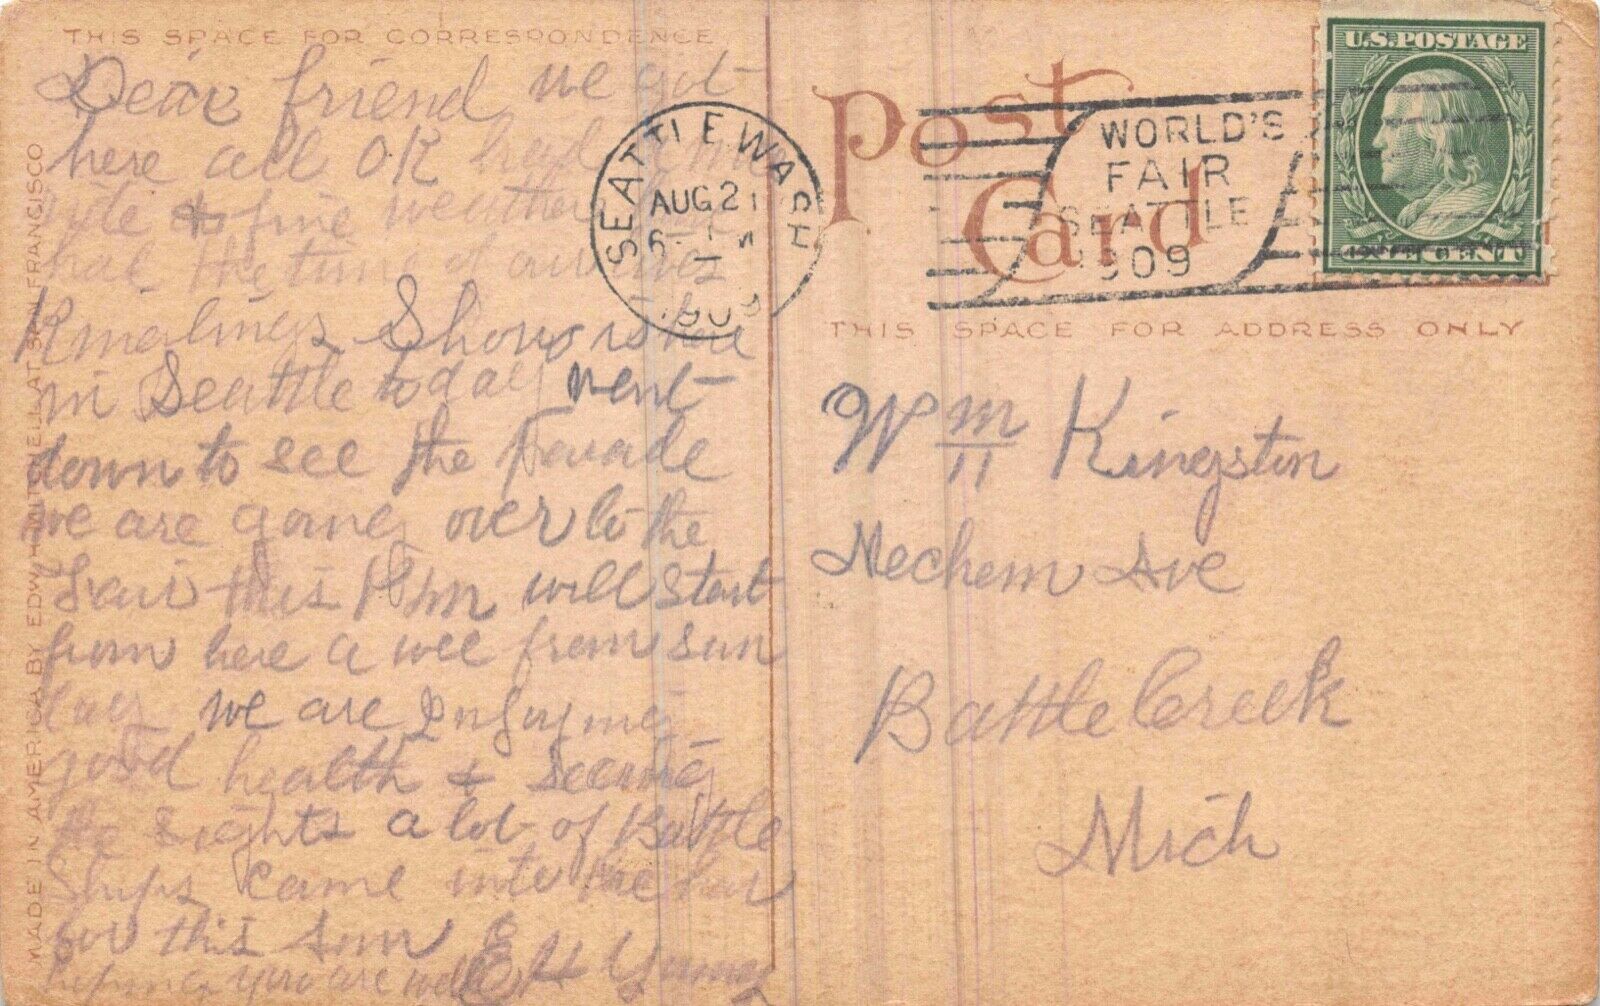 THIS SPACE FOR CORRESPONDENCE
Dear friend we got
here all OK had a
ride & fine weather
had the time of our lives
Ringlings Show is here
in Seattle today went
down to see the Parade
we are going over to the
Fair this P.m will start
from here a wee from sun
day we are Injoying
good health & Seeing
the Sights a lot of Battle
Ships came into the har
bor this
hoping you are well E H
MADE IN AMERICA BY EDW. H. MITCHELL AT SAN FRANCISCO
SEATTLE WASH
AUG 21
6
1909
WORLD'S
FAIR
SEATTLE
1909
U.S.POSTAGE
ONE CENT
Post
Card
THIS SPACE FOR ADDRESS ONLY
Wm Kingston
Mechem Ave
Battle Creek
Mich